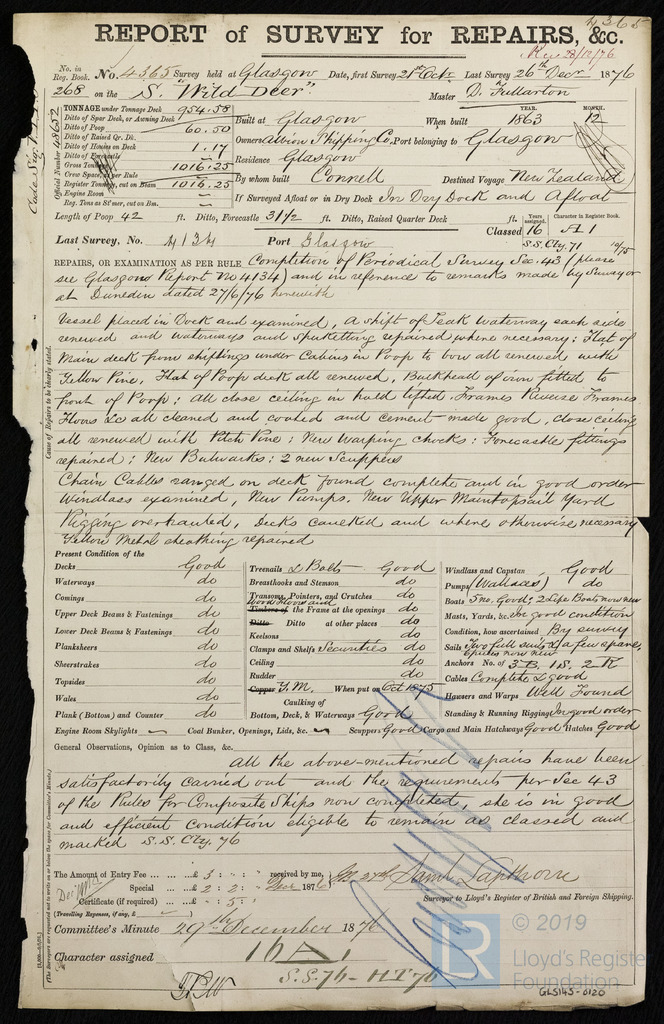 4365
REPORT of SURVEY for REPAIRS, &c.
Rec 28/12/76
No. in Reg. Book. No. 4365 Survey held at Glasgow Date, first Survey 21st Octr. Last Survey 26th Decr 1876
268 on the S. "Wild Deer" Master D. Fullarton
TONNAGE under Tonnage Deck 954.58
Ditto of Spar Deck, or Awning Deck
Ditto of Poop 60.50
Ditto of Raised Qr. Dk.
Ditto of Houses on Deck 1.17
Ditto of Forecastle
Gross Tonnage 1016.25
Crew Space, as per Rule
Register Tonnage, cut on Beam 1016.25
Engine Room
Reg. Tons as St'mer, cut on Bm.
Official Number 48652
Built at Glasgow When built YEAR. 1863 MONTH. 12
Owners Albion Shipping Co. Port belonging to Glasgow
Residence Glasgow
By whom built Connell Destined Voyage New Zealand
If Surveyed Afloat or in Dry Dock In Dry Dock and Afloat
Length of Poop 42 ft. Ditto, Forecastle 31½ ft. Ditto, Raised Quarter Deck ft. Years assigned. Character in Register Book.
Classed 16 A1
Last Survey, No. 4134 Port Glasgow S.S. Cty. 71 10/75
REPAIRS, OR EXAMINATION AS PER RULE Completion of Periodical Survey Sec. 43 (please
see Glasgow Report No 4134) and in reference to remarks made by Surveyor
at Dunedin dated 27/6/76 herewith
Cause of Repairs to be clearly stated.
Vessel placed in Dock and examined, a shift of Teak waterway each side
renewed and waterways and spirketting repaired where necessary; Flat of
Main deck from shiftings under Cabins in Poop to bow all renewed with
Yellow Pine, Flat of Poop deck all renewed, Bulkhead of iron fitted to
front of Poop; all close ceiling in hold lifted Frames Reverse Frames
Floors &c all cleaned and coated and cement made good, close ceiling
all renewed with Pitch Pine; New Warping chocks; Forecastle fittings
repaired; New Bulwarks; 2 new Scuppers
Chain Cables ranged on deck found complete and in good order
Windlass examined, New Pumps. New Upper Maintopsail Yard
Rigging overhauled, Decks caulked and where otherwise necessary
Yellow Metal sheathing repaired
Present Condition of the
Decks Good
Waterways do
Comings do
Upper Deck Beams & Fastenings do
Lower Deck Beams & Fastenings do
Planksheers do
Sheerstrakes do
Topsides do
Wales do
Plank (Bottom) and Counter do
Treenails & Bolts Good
Breasthooks and Stemson do
Transoms, Pointers, and Crutches do
Wood Floors and
Timbers of the Frame at the openings do
Ditto Ditto at other places do
Keelsons do
Clamps and Shelfs Securities do
Ceiling do
Rudder do
Copper Y.M. When put on Oct 1875
Caulking of
Bottom, Deck, & Waterways Good
Windlass and Capstan Good
Pumps (Wallaces) do
Boats 5 no. Good; 2 Life Boats now new
Masts, Yards, &c. In good condition
Condition, how ascertained By survey
Sails Two full suits & a few spare,
Anchors No. of 3 B. 1 S. 2 K
Cables Complete & good
Hawsers and Warps Well Found
Standing & Running Rigging In good order
Engine Room Skylights Coal Bunker, Openings, Lids, &c. Scuppers Good Cargo and Main Hatchways Good Hatches Good
General Observations, Opinion as to Class, &c.
All the above-mentioned repairs have been
satisfactorily carried out and the requirements per Sec 43
of the Rules for Composite Ships now completed, she is in good
and efficient condition eligible to remain as classed and
marked S.S. Cty. 76
The Amount of Entry Fee £ 3 : : received by me,
Special £ 2 : 2 : Decr 1876
Saml. Lapthorn
Certificate (if required) £ : 5 :
Surveyor to Lloyd's Register of British and Foreign Shipping.
(Travelling Expenses, if any, £ )
Committee's Minute 29th December 1876
Character assigned 16 A 1
S.S. 76 - HT 76
(The Surveyors are requested not to write on or below the space for Committee's Minute.)
LR
© 2019
Lloyd's Register
Foundation
GLS145-0120